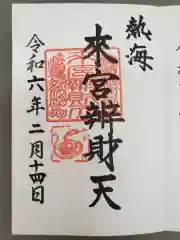 熱海
來宮辨財天
令和六年二月十四日